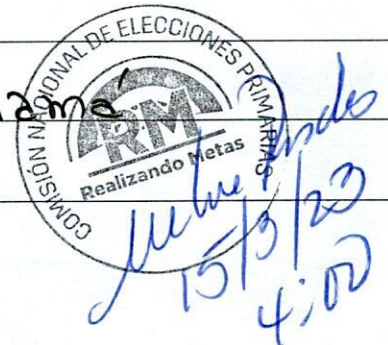 COMISIÓN NACIONAL DE ELECCIONES PRIMARIAS
RM
Realizando Metas
15/3/23
4:00